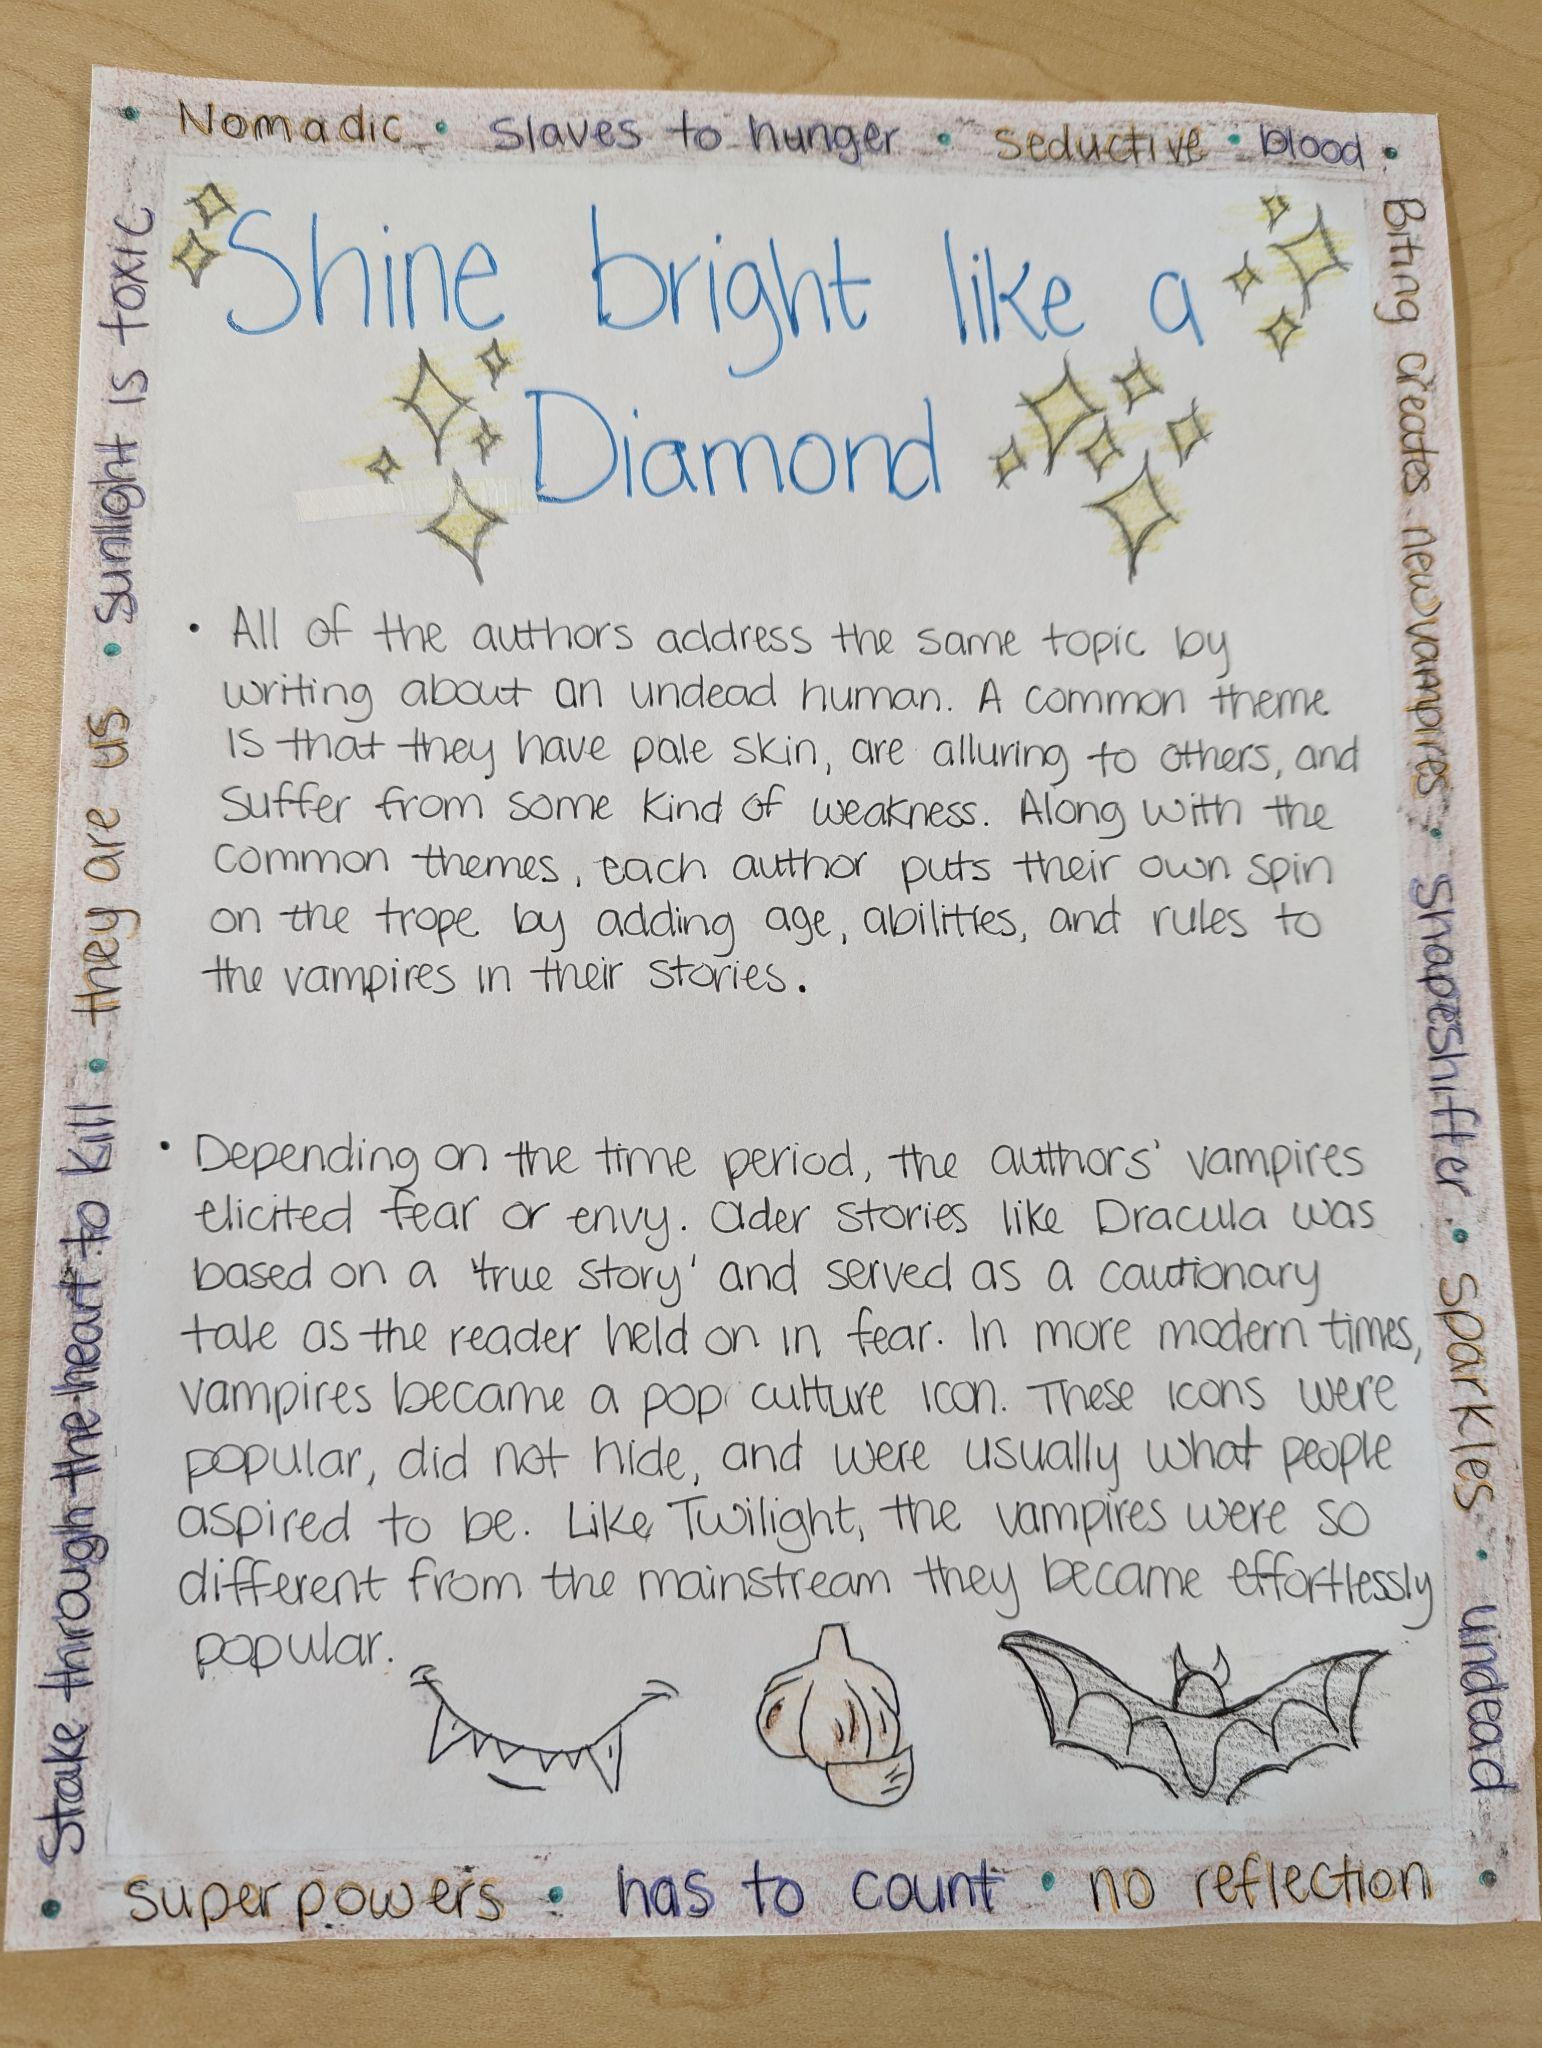 • Nomadic • slaves to hunger • seductive • blood •
Shine bright like a
Diamond
• All of the authors address the same topic by
writing about an undead human. A common theme
is that they have pale skin, are alluring to others, and
suffer from some kind of weakness. Along with the
common themes, each author puts their own spin
on the trope by adding age, abilities, and rules to
the vampires in their stories.
• Depending on the time period, the authors' vampires
elicited fear or envy. Older stories like Dracula was
based on a 'true story' and served as a cautionary
tale as the reader held on in fear. In more modern times,
vampires became a pop culture icon. These icons were
popular, did not hide, and were usually what people
aspired to be. Like Twilight, the vampires were so
different from the mainstream they became effortlessly
popular.
Biting creates new vampires • Shapeshifter • sparkles • undead
• superpowers • has to count • no reflection •
Stake through the heart to kill • they are us • Sunlight is toxic